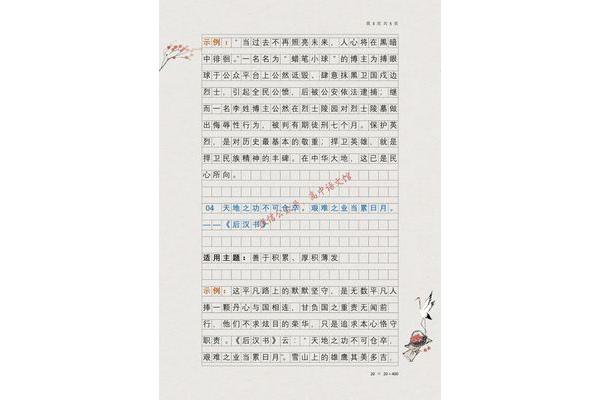 第 5 页 共 5 页
示例：“当过去不再照亮未来，人心将在黑暗
中徘徊。”一名名为“蜡笔小球”的博主为搏眼
球于公众平台上公然诋毁、肆意抹黑卫国戍边
烈士，引起全民公愤，后被公安依法逮捕；继
而一名李姓博主公然在烈士陵园对烈士陵墓做
出侮辱性行为，被判有期徒刑七个月。保护英
烈，是对历史最基本的敬重；捍卫英雄，就是
捍卫民族精神的丰碑。在中华大地，这已是民
心所向。
微信公众号：高中语文馆
04 天地之功不可仓卒，艰难之业当累日月。
——《后汉书》
适用主题：善于积累、厚积薄发
示例：这平凡路上的默默坚守，是无数平凡人
捧一颗丹心与国相连，甘负国之重责无闻前
行，他们不求炫目的荣华，只是追求本心恪守
职责。《后汉书》云：“天地之功不可仓卒，
艰难之业当累日月”。雪山上的雄鹰其美多吉，
20 × 20 = 400